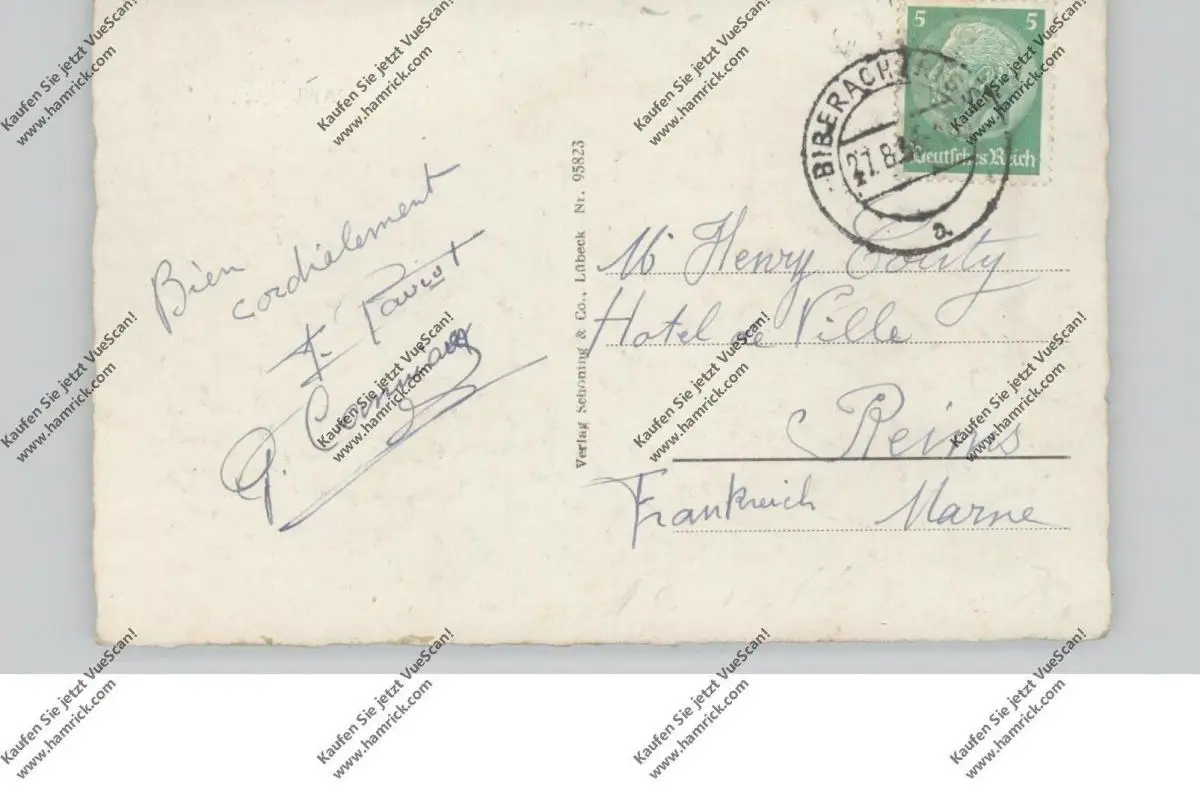 5 5
Deutsches Reich
BIBERACH
27.8.3
a
Bien
cordialement
Verlag Schöning & Co., Lübeck Nr. 95823
Mr Henry Couty
Hotel de Ville
Reims
Frankreich Marne
Kaufen Sie jetzt VueScan!
www.hamrick.com
Kaufen Sie jetzt VueScan!
www.hamrick.com
Kaufen Sie jetzt VueScan!
www.hamrick.com
Kaufen Sie jetzt VueScan!
www.hamrick.com
Kaufen Sie jetzt VueScan!
www.hamrick.com
Kaufen Sie jetzt VueScan!
www.hamrick.com
Kaufen Sie jetzt VueScan!
www.hamrick.com
Kaufen Sie jetzt VueScan!
www.hamrick.com
Kaufen Sie jetzt VueScan!
www.hamrick.com
Kaufen Sie jetzt VueScan!
www.hamrick.com
Kaufen Sie jetzt VueScan!
www.hamrick.com
Kaufen Sie jetzt VueScan!
www.hamrick.com